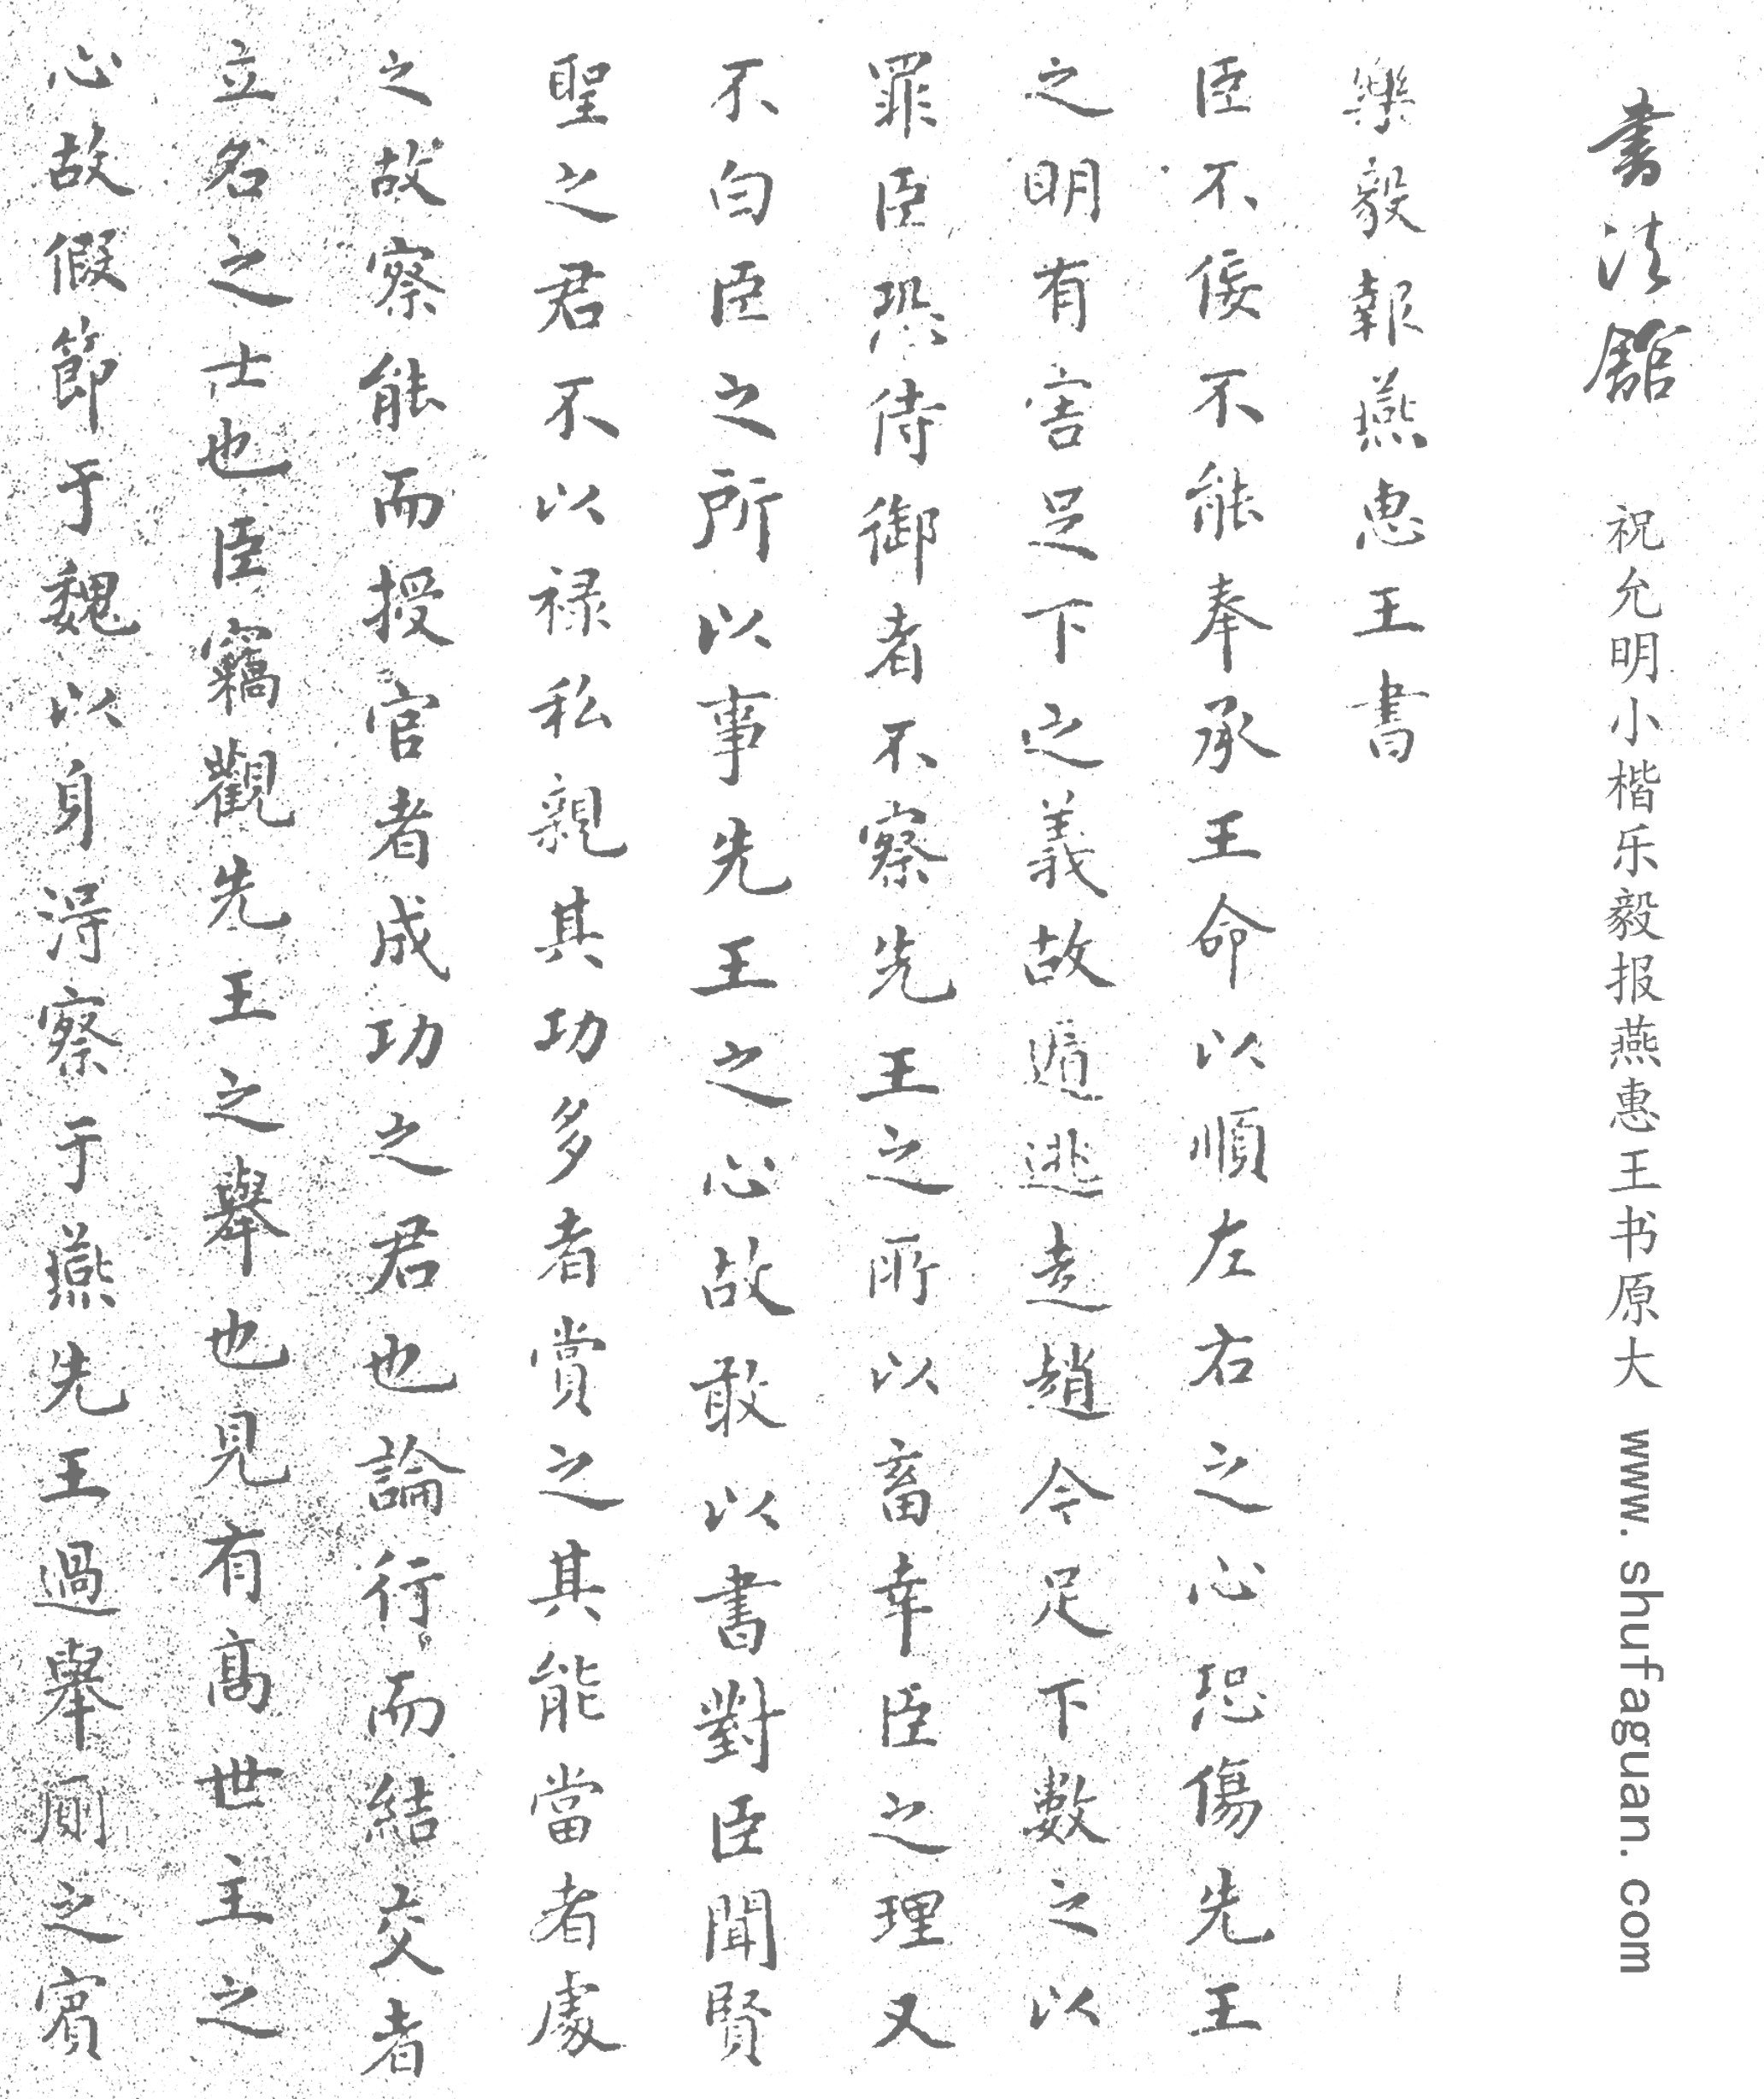 书法館 祝允明小楷乐毅报燕惠王书原大 www.shufaguan.com
樂毅報燕惠王書
臣不佞不能奉承王命以順左右之心恐傷先王
之明有害足下之義故遁逃走趙今足下數之以
罪臣恐侍御者不察先王之所以畜幸臣之理又
不白臣之所以事先王之心故敢以書對臣聞賢
聖之君不以禄私親其功多者賞之其能當者處
之故察能而授官者成功之君也論行而結交者
立名之士也臣竊觀先王之舉也見有高世主之
心故假節于魏以身得察于燕先王過舉厠之賓